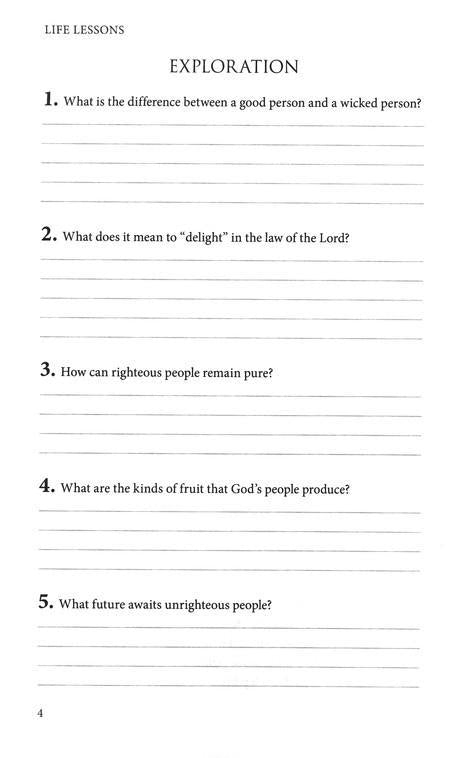 LIFE LESSONS
EXPLORATION
1. What is the difference between a good person and a wicked person?
2. What does it mean to “delight” in the law of the Lord?
3. How can righteous people remain pure?
4. What are the kinds of fruit that God’s people produce?
5. What future awaits unrighteous people?
4